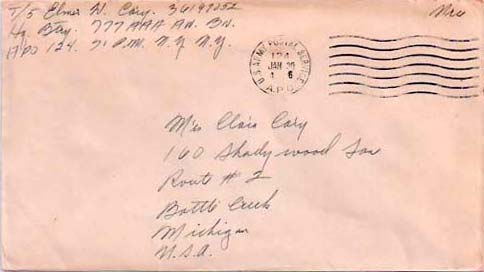 T/5 Elmer W. Cory. 36149252
Hq. Btry. 777 AAA AW. BN.
APO 124. % P.M. N.Y. N.Y.
U.S. ARMY POSTAL SERVICE
124
JAN 30
4 6
A.P.O.
Mrs Clois Cory
160 Shadywood
Route # 2
Battle Creek
Michigan
U.S.A.